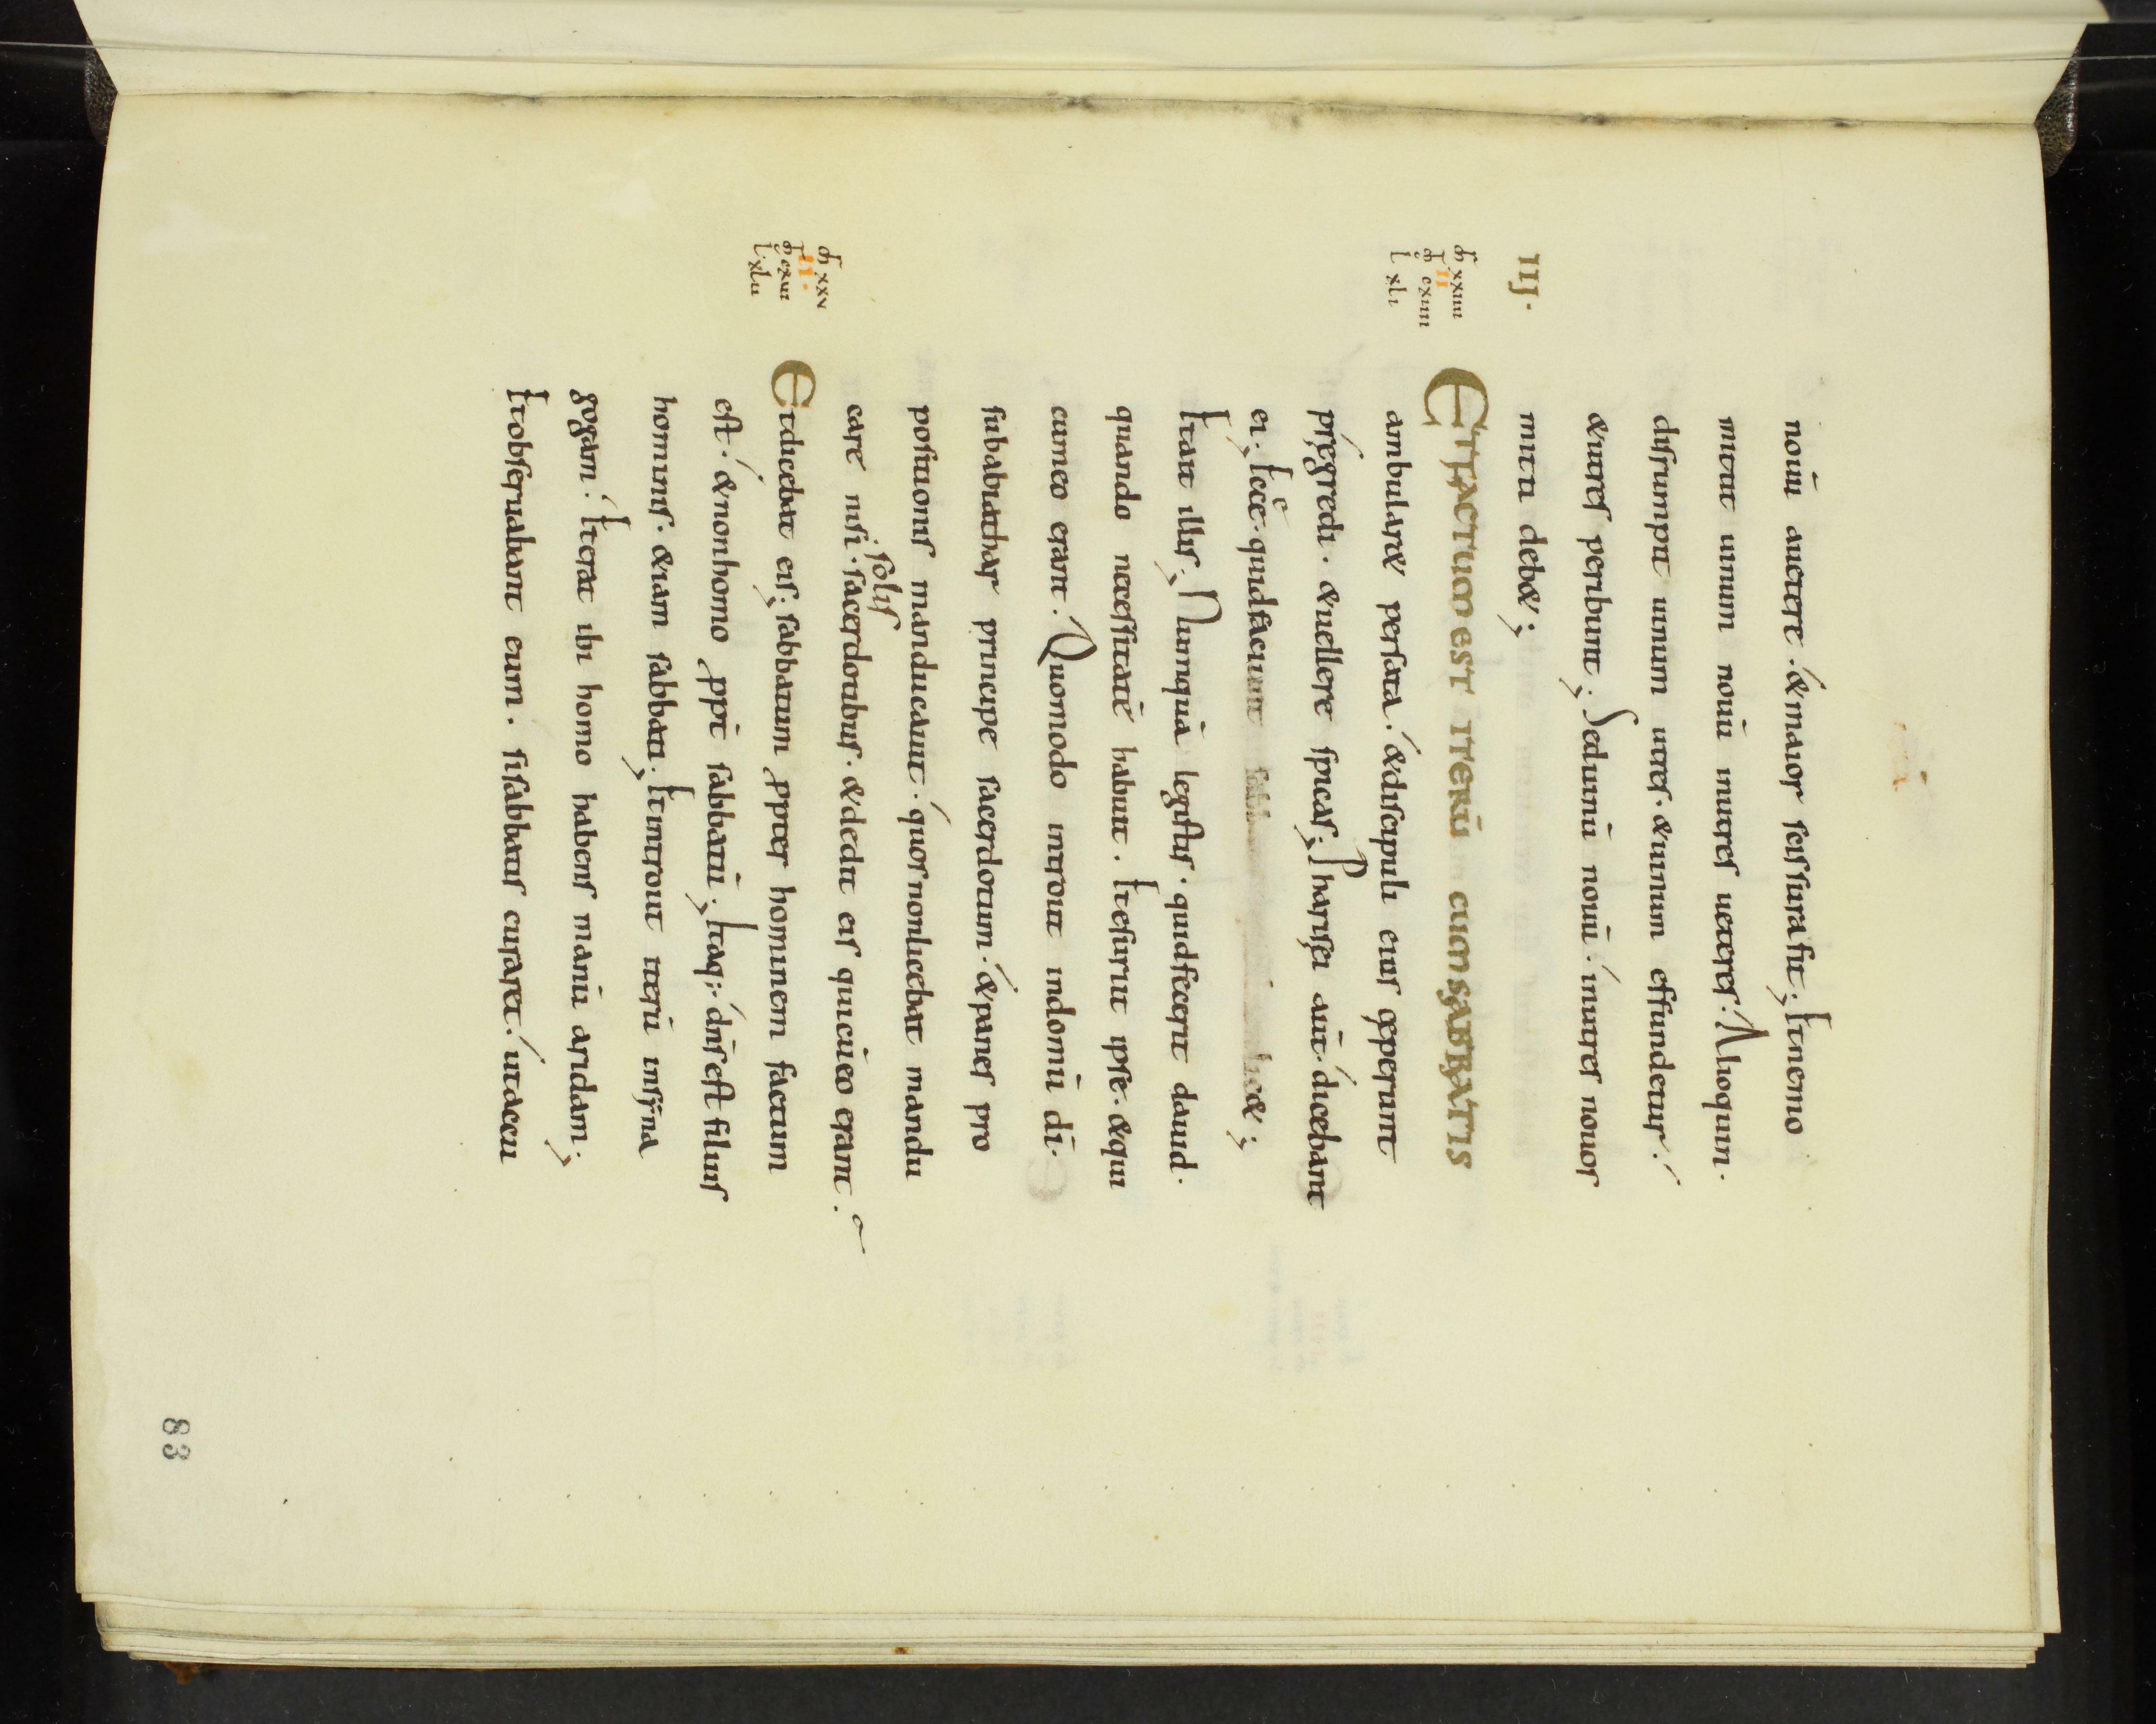 nouū auetere. & maior scissura fit; Et nemo
mittit uinum nouū inutres ueteres. Alioquin.
disrumpit uinum utres. & uinum effundetur.
& utres peribunt. Sed uinū nouū. inutres nouos
mitti deb&;
IIJ.
ET FACTUM EST ITERŪ CUM SABBATIS
m̄ xxiiii
II
m̄ cxiiii
l xli
ambular& persata. & discipuli eius cęperunt
prégredi. & uellere spicas; Pharisęi aūt. dicebant
ei; Ecce. quidfaciunt lic&;
Et ait illis; Numquā legistis. quidfecerit dauid.
quando necessitatē habuit. Et esuriit ipse. & qui
cumeo erant. Quomodo introiit indomū dī.
subabiathar principe sacerdotum. & panes pro
positionis manducauit. quos nonlicebat mandu
solis
care nisi. sacerdotibus. & dedit eis quicūeo erant.
m̄ xxv
II.
m̄ cxui
l xlii
Et dicebat eis; sabbatum ppter hominem factum
est. & nonhomo ppt̄ sabbatū; Itaq;. dn̄s est filius
hominis. & iam sabbati; Et introiit iterū insȳna
gogam. Et erat ibi homo habens manū aridam;
Et obseruabant eum. sisabbatis curaret. utaccu
83